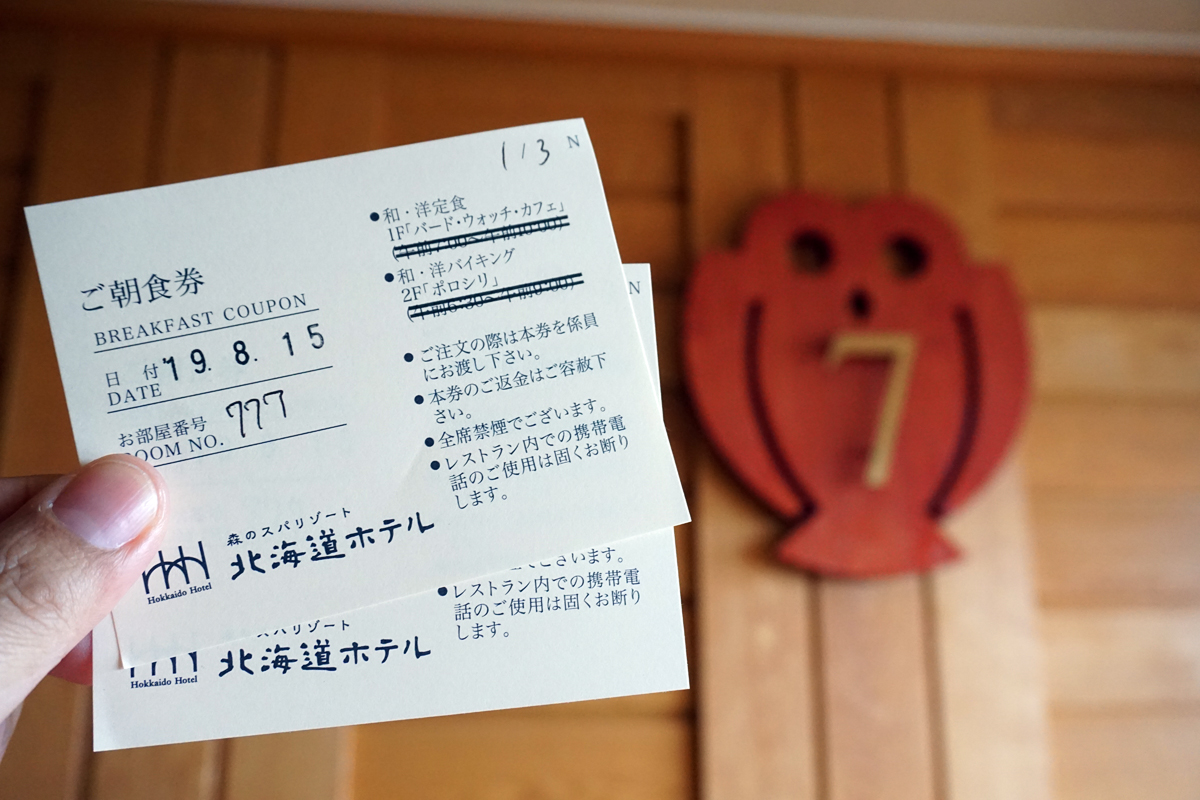 1/3 N
ご朝食券
BREAKFAST COUPON
日 付 '19. 8. 15
DATE
お部屋番号 777
ROOM NO.
●和・洋定食
1F「バード・ウォッチ・カフェ」
●和・洋バイキング
2F「ポロシリ」
●ご注文の際は本券を係員
にお渡し下さい。
●本券のご返金はご容赦下
さい。
●全席禁煙でございます。
●レストラン内での携帯電
話のご使用は固くお断り
します。
森のスパリゾート
北海道ホテル
Hokkaido Hotel
N
ございます。
●レストラン内での携帯電
話のご使用は固くお断り
します。
スパリゾート
北海道ホテル
Hokkaido Hotel
7